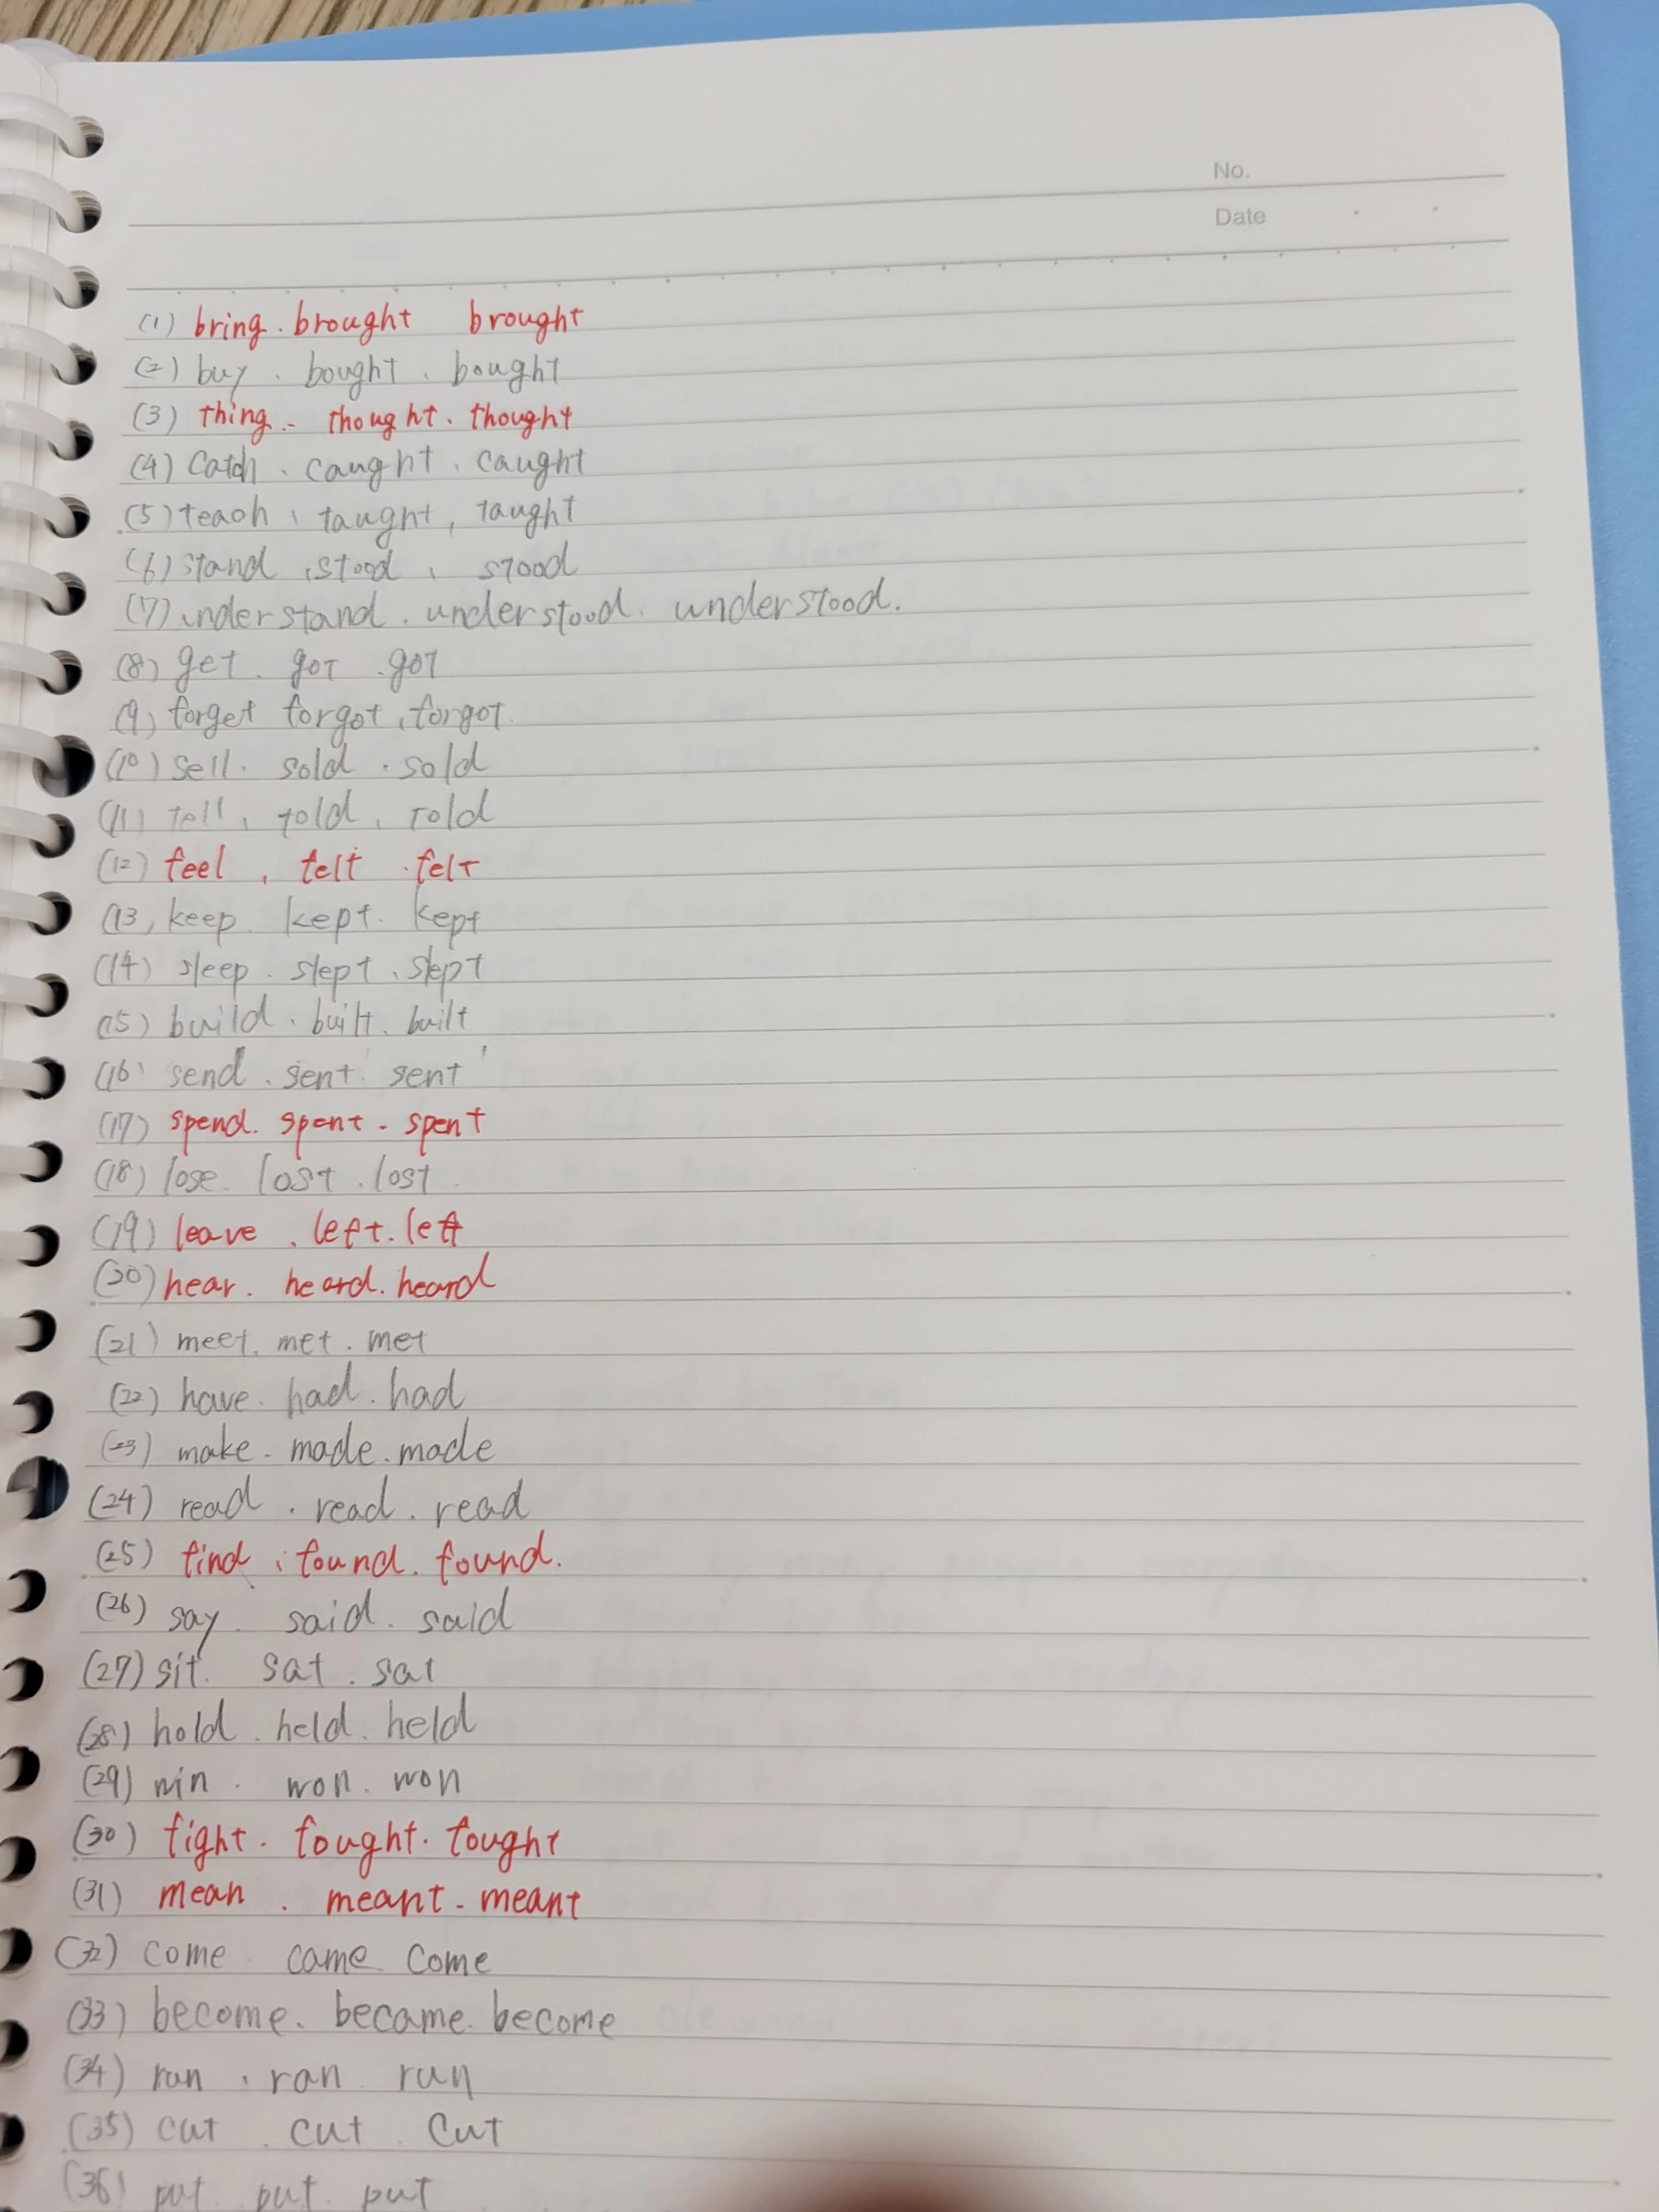 No.
Date
(1) bring. brought brought
(2) buy. bought. bought
(3) thing. thought. thought
(4) catch. caught. caught
(5) teach, taught, taught
(6) stand, stood, stood
(7) understand. understood. understood.
(8) get. got. got
(9) forget forgot, forgot.
(10) sell. sold. sold
(11) tell, told, told
(12) feel, felt. felt
(13) keep. kept. kept
(14) sleep. slept. slept
(15) build. built. built
(16) send. sent. sent
(17) spend. spent. spent
(18) lose. lost. lost.
(19) leave. left. left
(20) hear. heard. heard
(21) meet. met. met
(22) have. had. had
(23) make. made. made
(24) read. read. read
(25) find. found. found.
(26) say. said. said
(27) sit. sat. sat
(28) hold. held. held
(29) win. won. won
(30) fight. fought. fought
(31) mean. meant. meant
(32) come came. come
(33) become. became. become
(34) run. ran run
(35) cut. cut. cut
(36) put. put. put